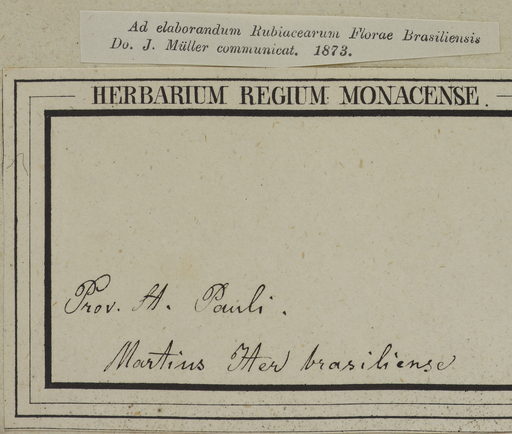 Ad elaborandum Rubiacearum Florae Brasiliensis
Do. J. Müller communicat. 1873.
HERBARIUM REGIUM MONACENSE.
Prov. St. Pauli.
Martius Iter brasiliense